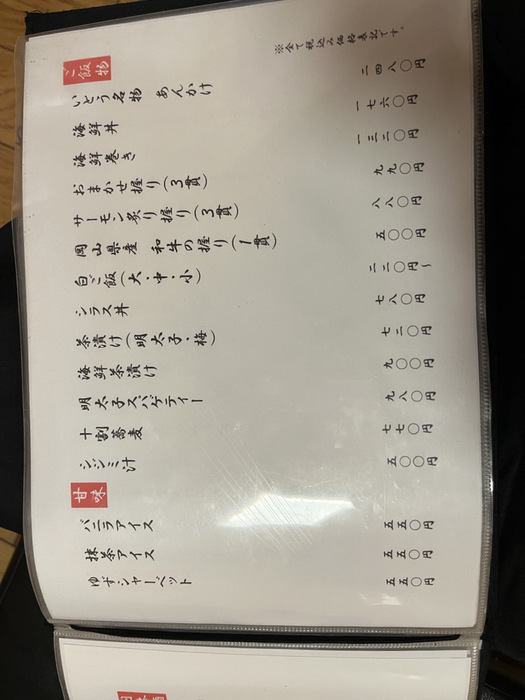 ※全て税込み価格表記です。
ご飯物
いとう名物 あんかけ 二四八〇円
海鮮丼 一七六〇円
海鮮巻き 一三二〇円
おまかせ握り(3貫) 九九〇円
サーモン炙り握り(3貫) 八八〇円
岡山県産 和牛の握り(1貫) 五〇〇円
白ご飯(大・中・小) 二二〇円~
シラス丼 七八〇円
茶漬け(明太子・梅) 七二〇円
海鮮茶漬け 九〇〇円
明太子スパゲティー 九八〇円
十割蕎麦 七七〇円
シジミ汁 五〇〇円
甘味
バニラアイス 五五〇円
抹茶アイス 五五〇円
ゆずシャーベット 五五〇円